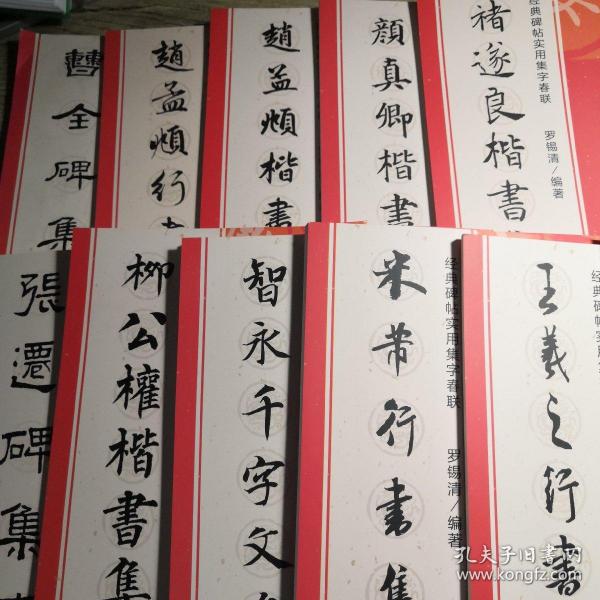 曹全碑集
趙孟頫行書
趙孟頫楷書
顏真卿楷書
褚遂良楷書
经典碑帖实用集字春联
罗锡清/编著
張遷碑集
柳公權楷書集
智永千字文
米芾行書集
经典碑帖实用集字春联
罗锡清/编著
王羲之行書
经典碑帖实用集
孔夫子旧书网
www.kongfz.com